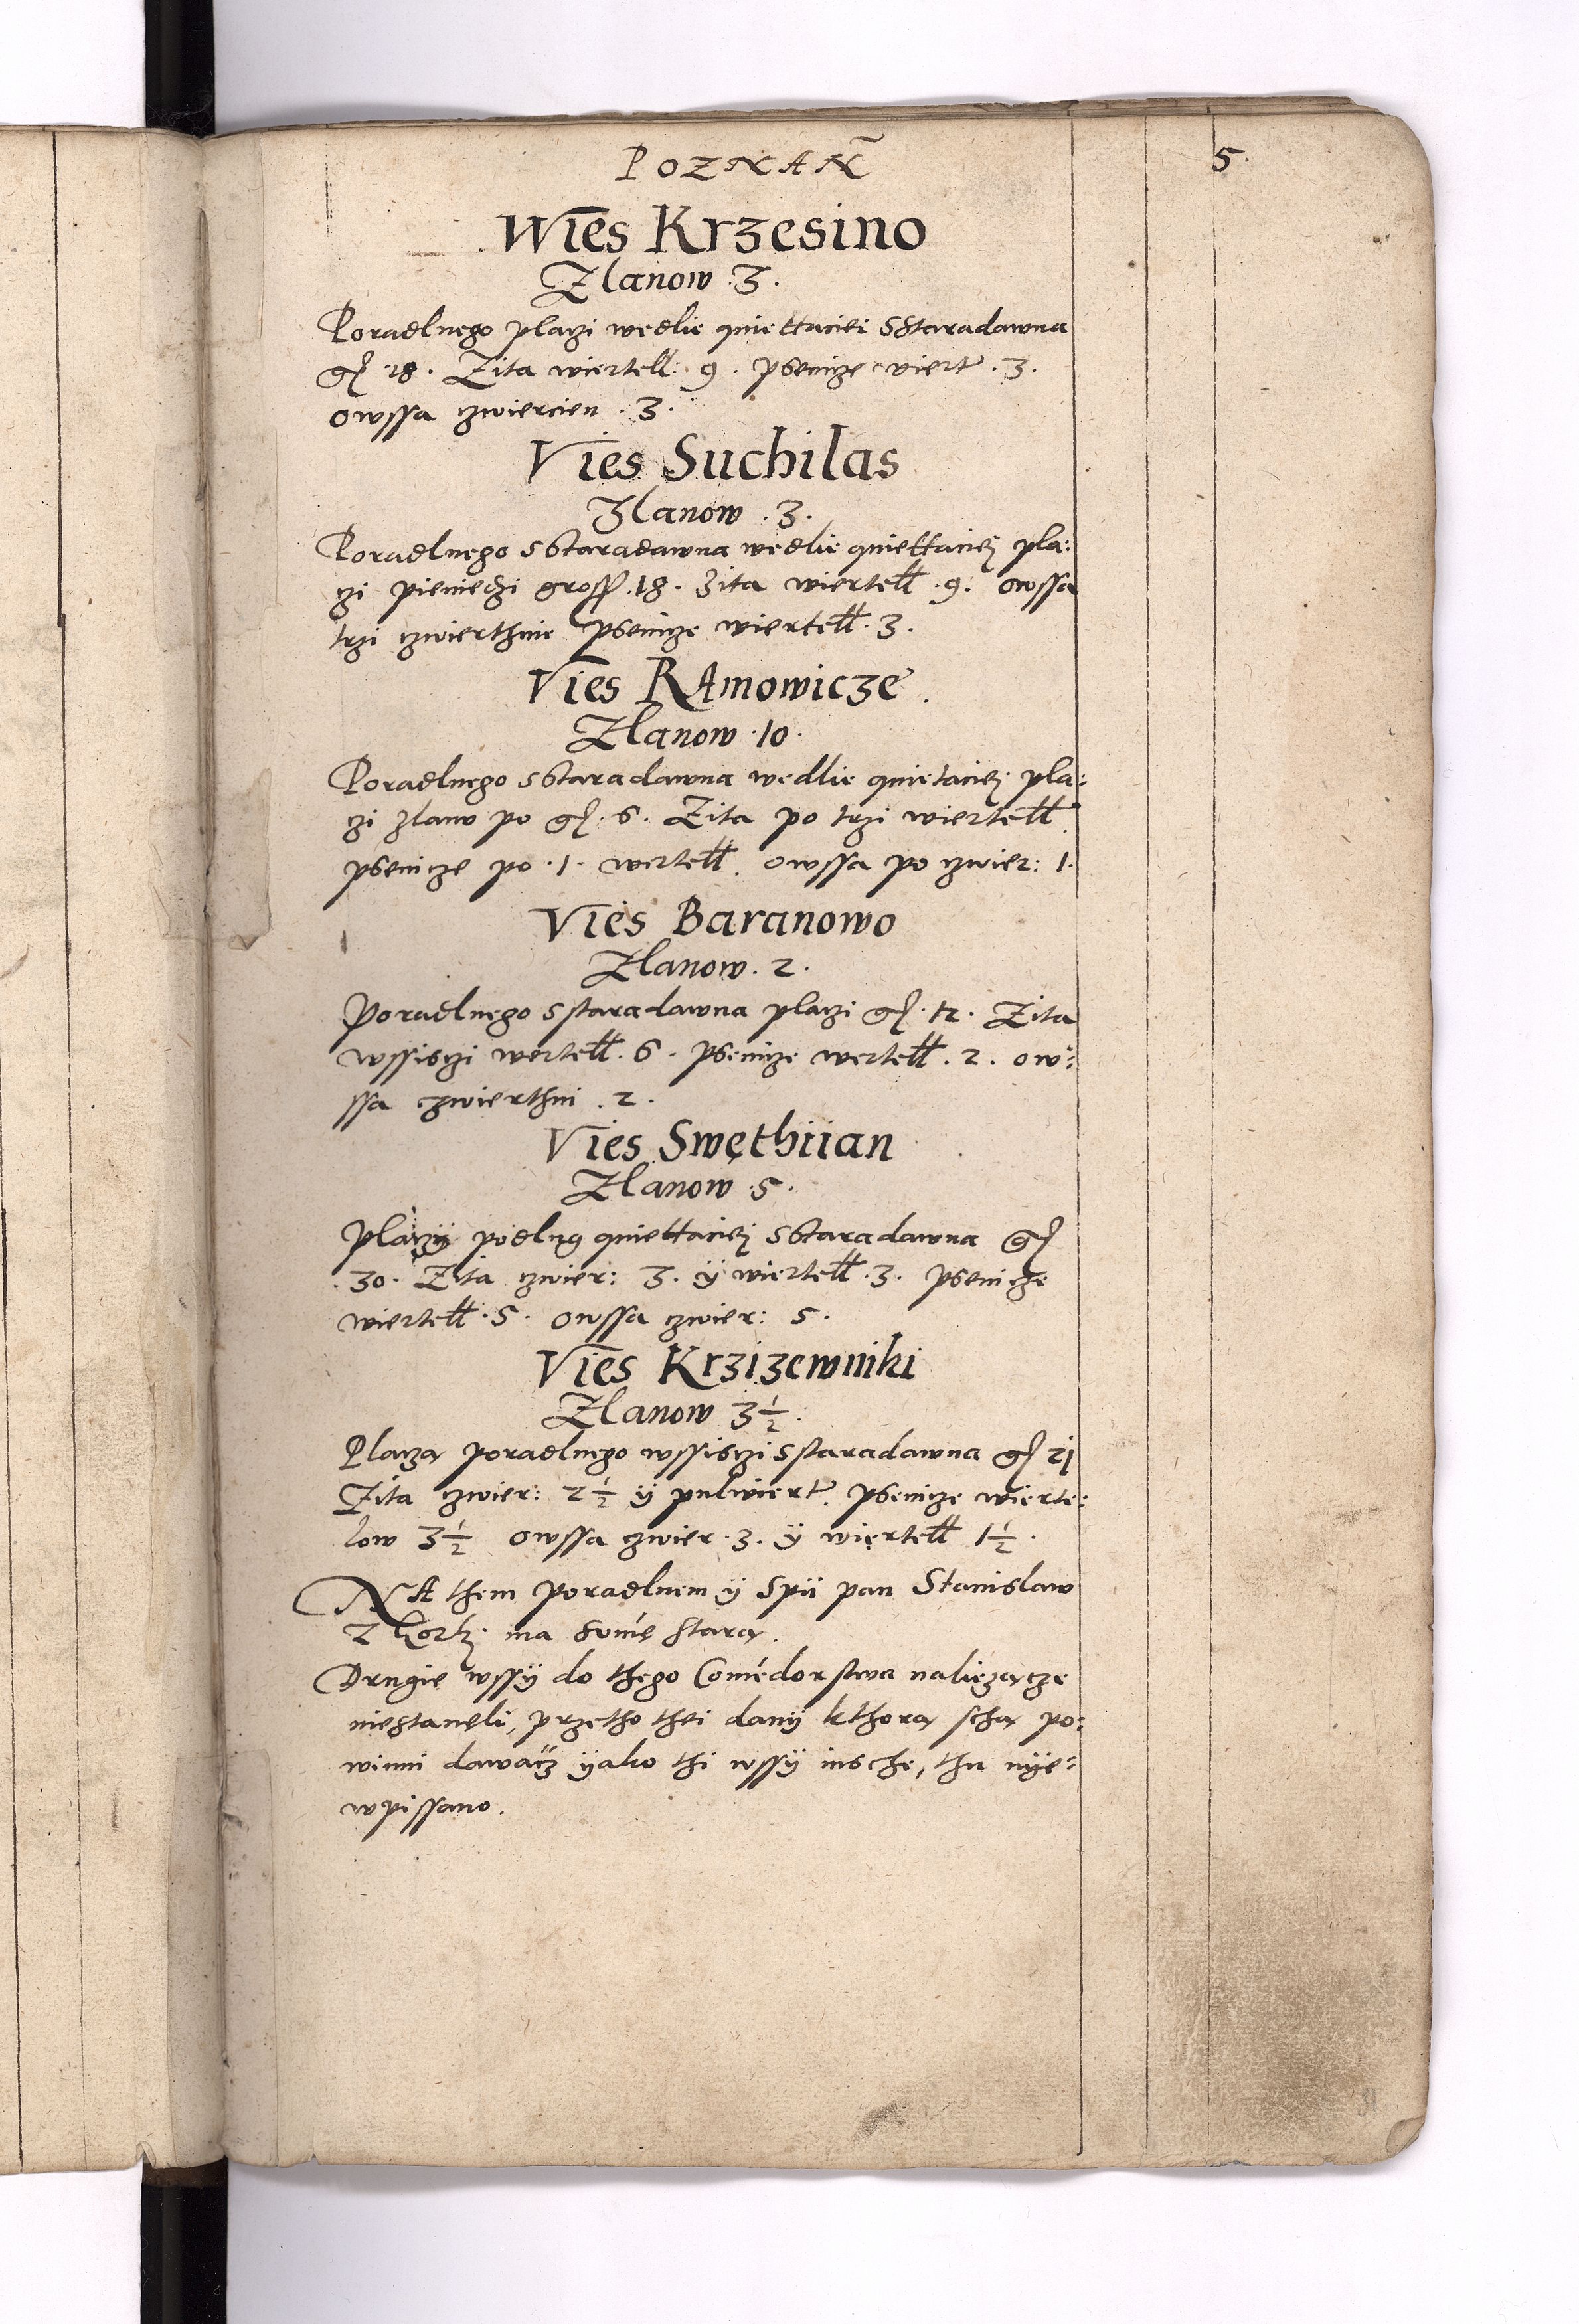 POZNAŃ
5.
Wies Krzesino
Zlanow .3.
Poradlnego placzi wedlie quiettaciei Sstaradawna
gł .18. Zita wiertell: 9. psenicze viert .3.
owssa czwiercien .3.
Vies Suchilas
Zlanow .3.
Poradlnego sstaradawna wedlie quiettaciej pla:
czi pieniedzi gross .18. zita wiertell .9. owssa
trzi czwierthnie psenicze wiertell .3.
Vies RAmowicze.
Zlanow .10.
Poradlnego sstaradawna wedlie quietaciej pla:
czi zlanu po gł .6. Zita po trzi wiertell.
psenicze po .1. wertell. owssa po czwier: 1.
Vies Baranowo
Zlanow .2.
Poradlnego sstaradawna placzi gł .12. Zita
wssisczi wertell .6. psenicze wertell .2. ow:
ssa czwierthni .2.
Vies Swęthiian
Zlanow .5.
placzÿ podlug quiettaciej sstaradawna gł
.30. Zita czwier: 3. ÿ wiertell .3. psenicze
wiertell .5. owssa czwier: 5.
Vies Krzizewniki
Zlanow 3½.
Placzą poradlnego wssisczi sstaradawna gł 21
Zita czwier: 2½ ÿ pulwiert. psenicze wierte:
low 3½ owssa czwier .3. ÿ wiertell 1½.
NA them poradlnem ÿ spÿ pan Stanislaw
ma sumę starą.
Drugie wssÿ do thego Comedorstwa nalięzącze
niestanęli, przetho thei danÿ kthorą schą po:
winni dawacz ÿako thi wssÿ insche, thu nÿe:
wpissano.
31